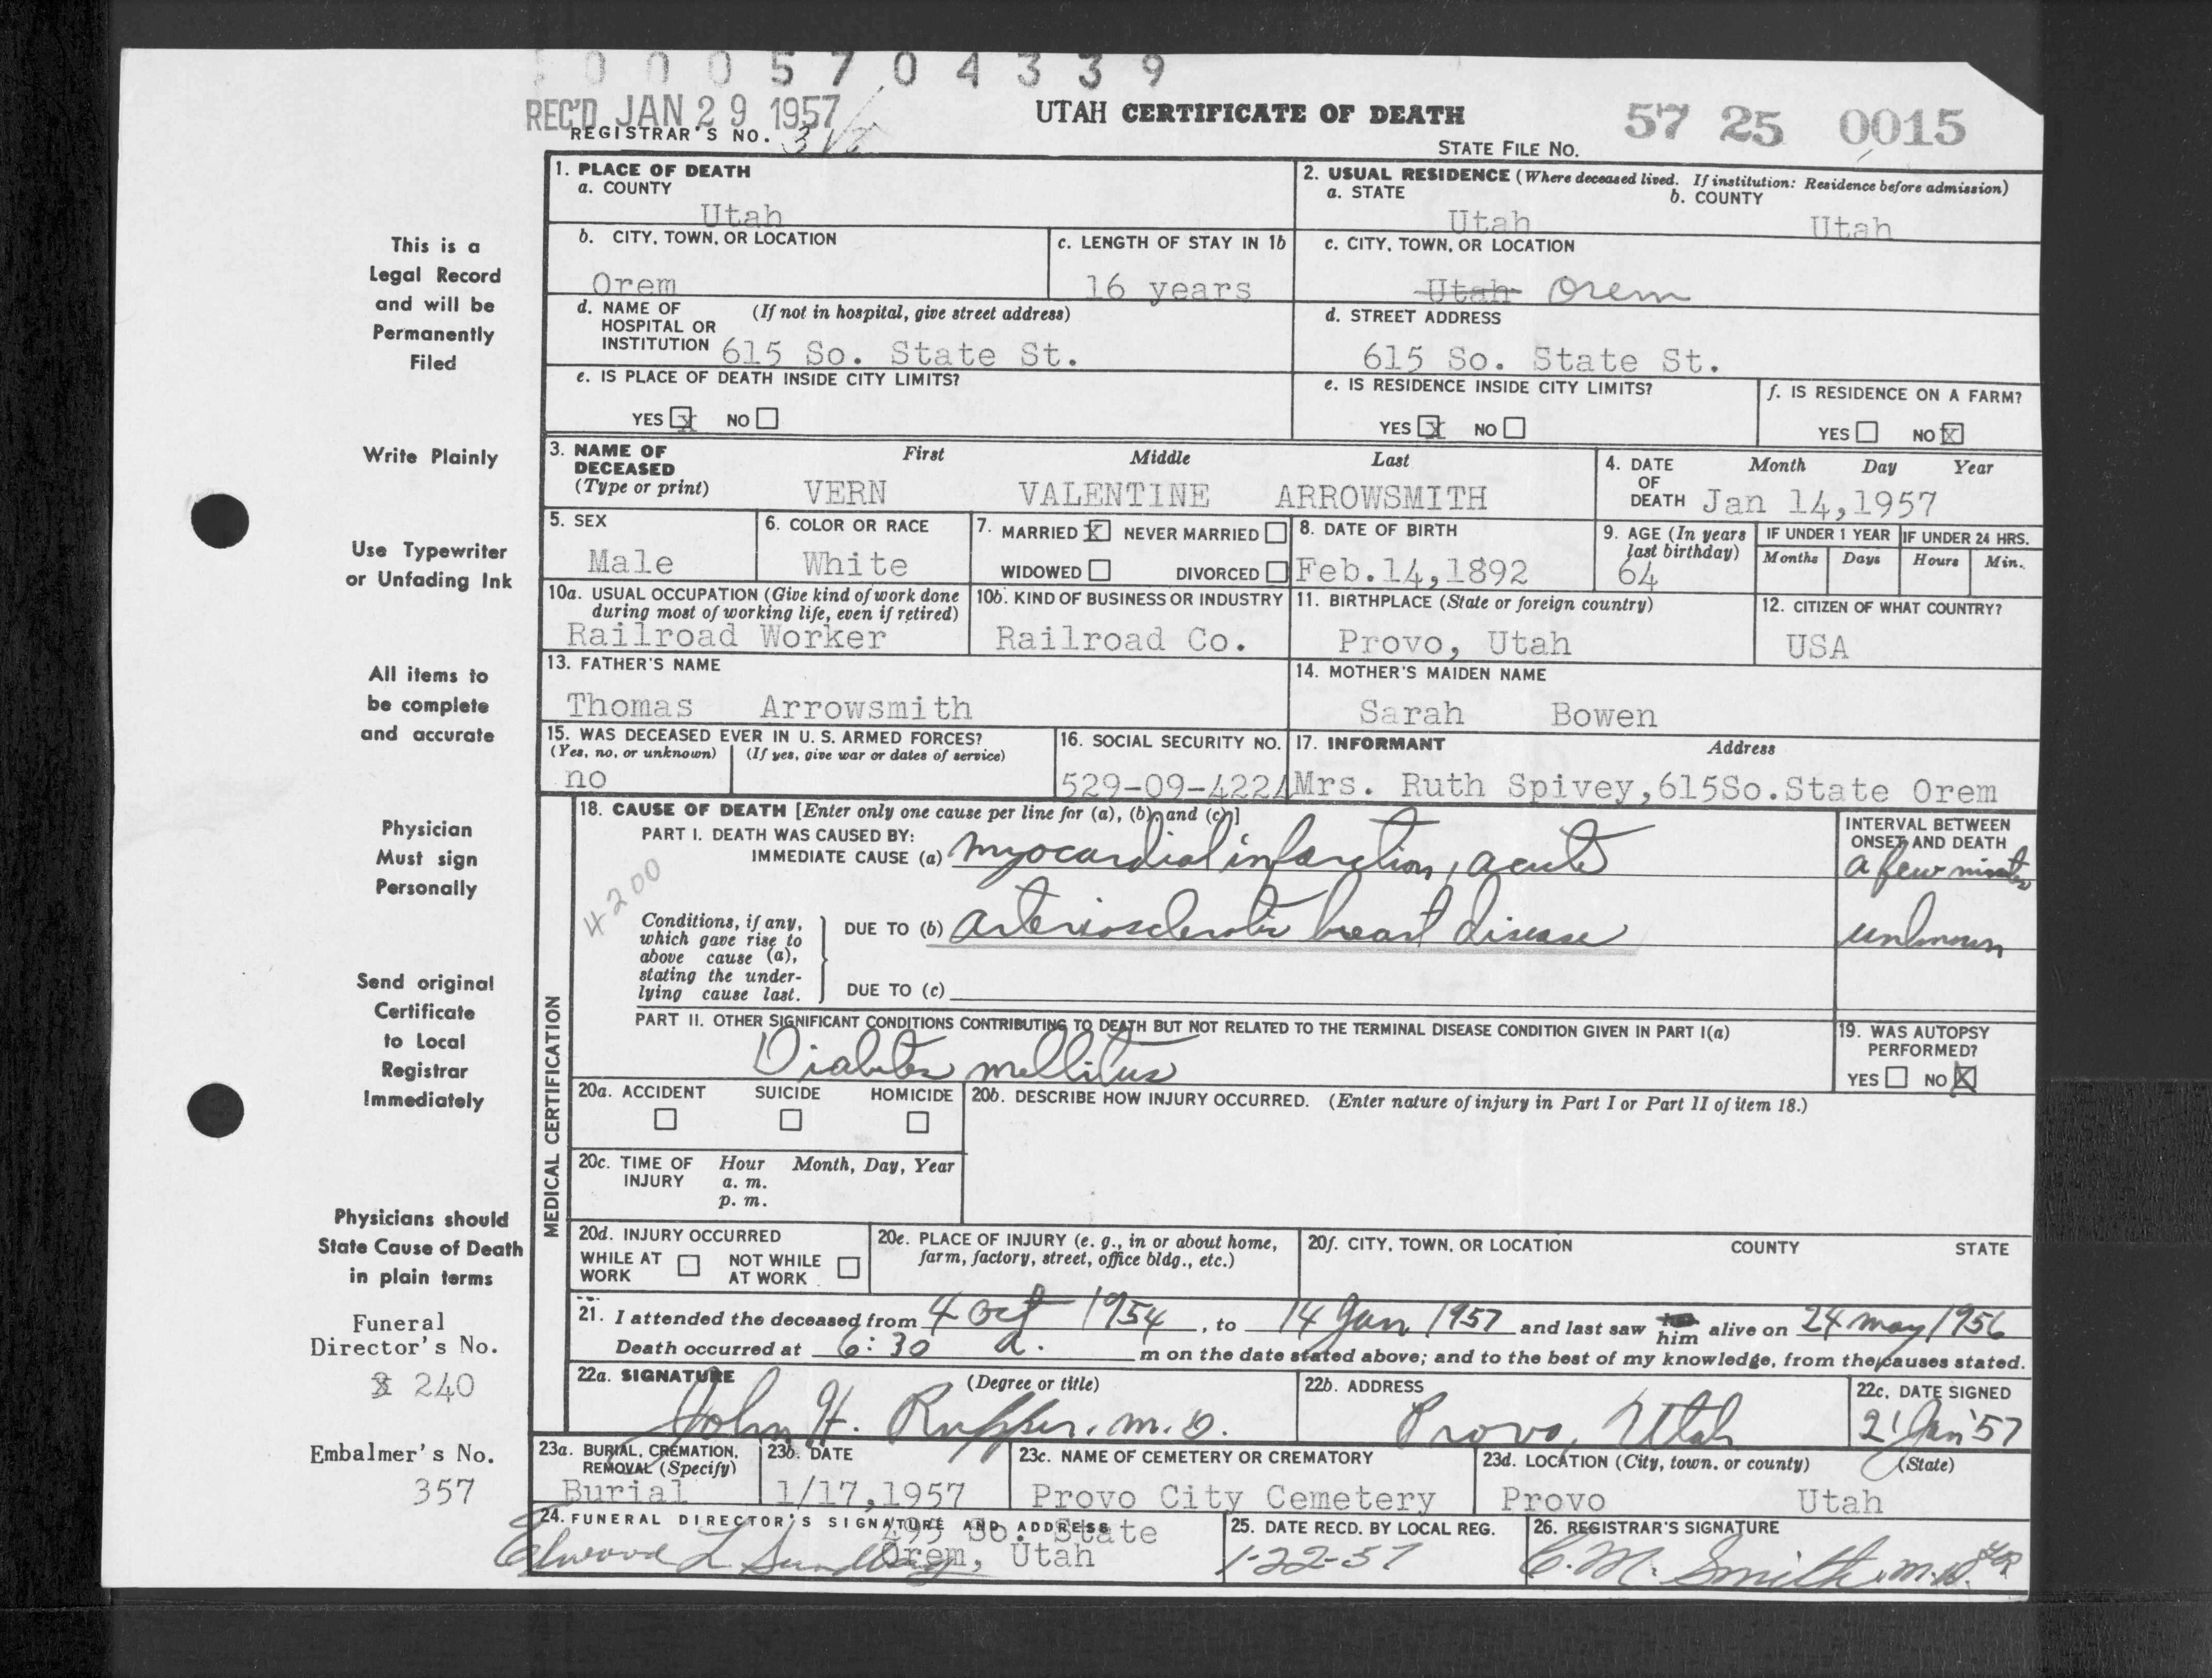 0005704339
REC'D JAN 29 1957
UTAH CERTIFICATE OF DEATH
57 25 0015
REGISTRAR'S NO.
STATE FILE No.
1. PLACE OF DEATH
a. COUNTY
Utah
2. USUAL RESIDENCE (Where deceased lived. If institution: Residence before admission)
a. STATE
b. COUNTY
Utah Utah
b. CITY, TOWN, OR LOCATION
Orem
c. LENGTH OF STAY IN 1b
16 years
c. CITY, TOWN, OR LOCATION
Utah Orem
d. NAME OF HOSPITAL OR INSTITUTION (If not in hospital, give street address)
615 So. State St.
d. STREET ADDRESS
615 So. State St.
e. IS PLACE OF DEATH INSIDE CITY LIMITS?
YES x NO
e. IS RESIDENCE INSIDE CITY LIMITS?
YES x NO
f. IS RESIDENCE ON A FARM?
YES NO x
3. NAME OF DECEASED (Type or print)
First Middle Last
VERN VALENTINE ARROWSMITH
4. DATE OF DEATH
Month Day Year
Jan 14,1957
5. SEX
Male
6. COLOR OR RACE
White
7. MARRIED x NEVER MARRIED
WIDOWED DIVORCED
8. DATE OF BIRTH
Feb.14,1892
9. AGE (In years last birthday)
64
IF UNDER 1 YEAR
Months Days
IF UNDER 24 HRS.
Hours Min.
10a. USUAL OCCUPATION (Give kind of work done during most of working life, even if retired)
Railroad Worker
10b. KIND OF BUSINESS OR INDUSTRY
Railroad Co.
11. BIRTHPLACE (State or foreign country)
Provo, Utah
12. CITIZEN OF WHAT COUNTRY?
USA
13. FATHER'S NAME
Thomas Arrowsmith
14. MOTHER'S MAIDEN NAME
Sarah Bowen
15. WAS DECEASED EVER IN U. S. ARMED FORCES?
(Yes, no, or unknown) (If yes, give war or dates of service)
no
16. SOCIAL SECURITY NO.
529-09-422
17. INFORMANT Address
Mrs. Ruth Spivey,615So.State Orem
18. CAUSE OF DEATH [Enter only one cause per line for (a), (b), and (c).]
PART I. DEATH WAS CAUSED BY:
IMMEDIATE CAUSE (a) myocardial infarction, acute
INTERVAL BETWEEN ONSET AND DEATH
a few minutes
4200
Conditions, if any, which gave rise to above cause (a), stating the underlying cause last.
DUE TO (b) arteriosclerotic heart disease
unknown
DUE TO (c)
PART II. OTHER SIGNIFICANT CONDITIONS CONTRIBUTING TO DEATH BUT NOT RELATED TO THE TERMINAL DISEASE CONDITION GIVEN IN PART I(a)
Diabetes mellitus
19. WAS AUTOPSY PERFORMED?
YES NO X
MEDICAL CERTIFICATION
20a. ACCIDENT SUICIDE HOMICIDE
20b. DESCRIBE HOW INJURY OCCURRED. (Enter nature of injury in Part I or Part II of item 18.)
20c. TIME OF INJURY
Hour Month, Day, Year
a. m.
p. m.
20d. INJURY OCCURRED
WHILE AT WORK NOT WHILE AT WORK
20e. PLACE OF INJURY (e. g., in or about home, farm, factory, street, office bldg., etc.)
20f. CITY, TOWN, OR LOCATION COUNTY STATE
21. I attended the deceased from 4 Oct 1954, to 14 Jan 1957 and last saw him alive on 24 may 1956
Death occurred at 6:30 a. m on the date stated above; and to the best of my knowledge, from the causes stated.
22a. SIGNATURE (Degree or title)
John H. Rupper, M.D.
22b. ADDRESS
Provo, Utah
22c. DATE SIGNED
21 Jan '57
23a. BURIAL, CREMATION, REMOVAL (Specify)
Burial
23b. DATE
1/17,1957
23c. NAME OF CEMETERY OR CREMATORY
Provo City Cemetery
23d. LOCATION (City, town, or county) (State)
Provo Utah
24. FUNERAL DIRECTOR'S SIGNATURE AND ADDRESS
495 So. State
Orem, Utah
Elwood L Sundberg
25. DATE RECD. BY LOCAL REG.
1-22-57
26. REGISTRAR'S SIGNATURE
C.M. Smith M.D.
This is a
Legal Record
and will be
Permanently
Filed
Write Plainly
Use Typewriter
or Unfading Ink
All items to
be complete
and accurate
Physician
Must sign
Personally
Send original
Certificate
to Local
Registrar
Immediately
Physicians should
State Cause of Death
in plain terms
Funeral
Director's No.
240
Embalmer's No.
357